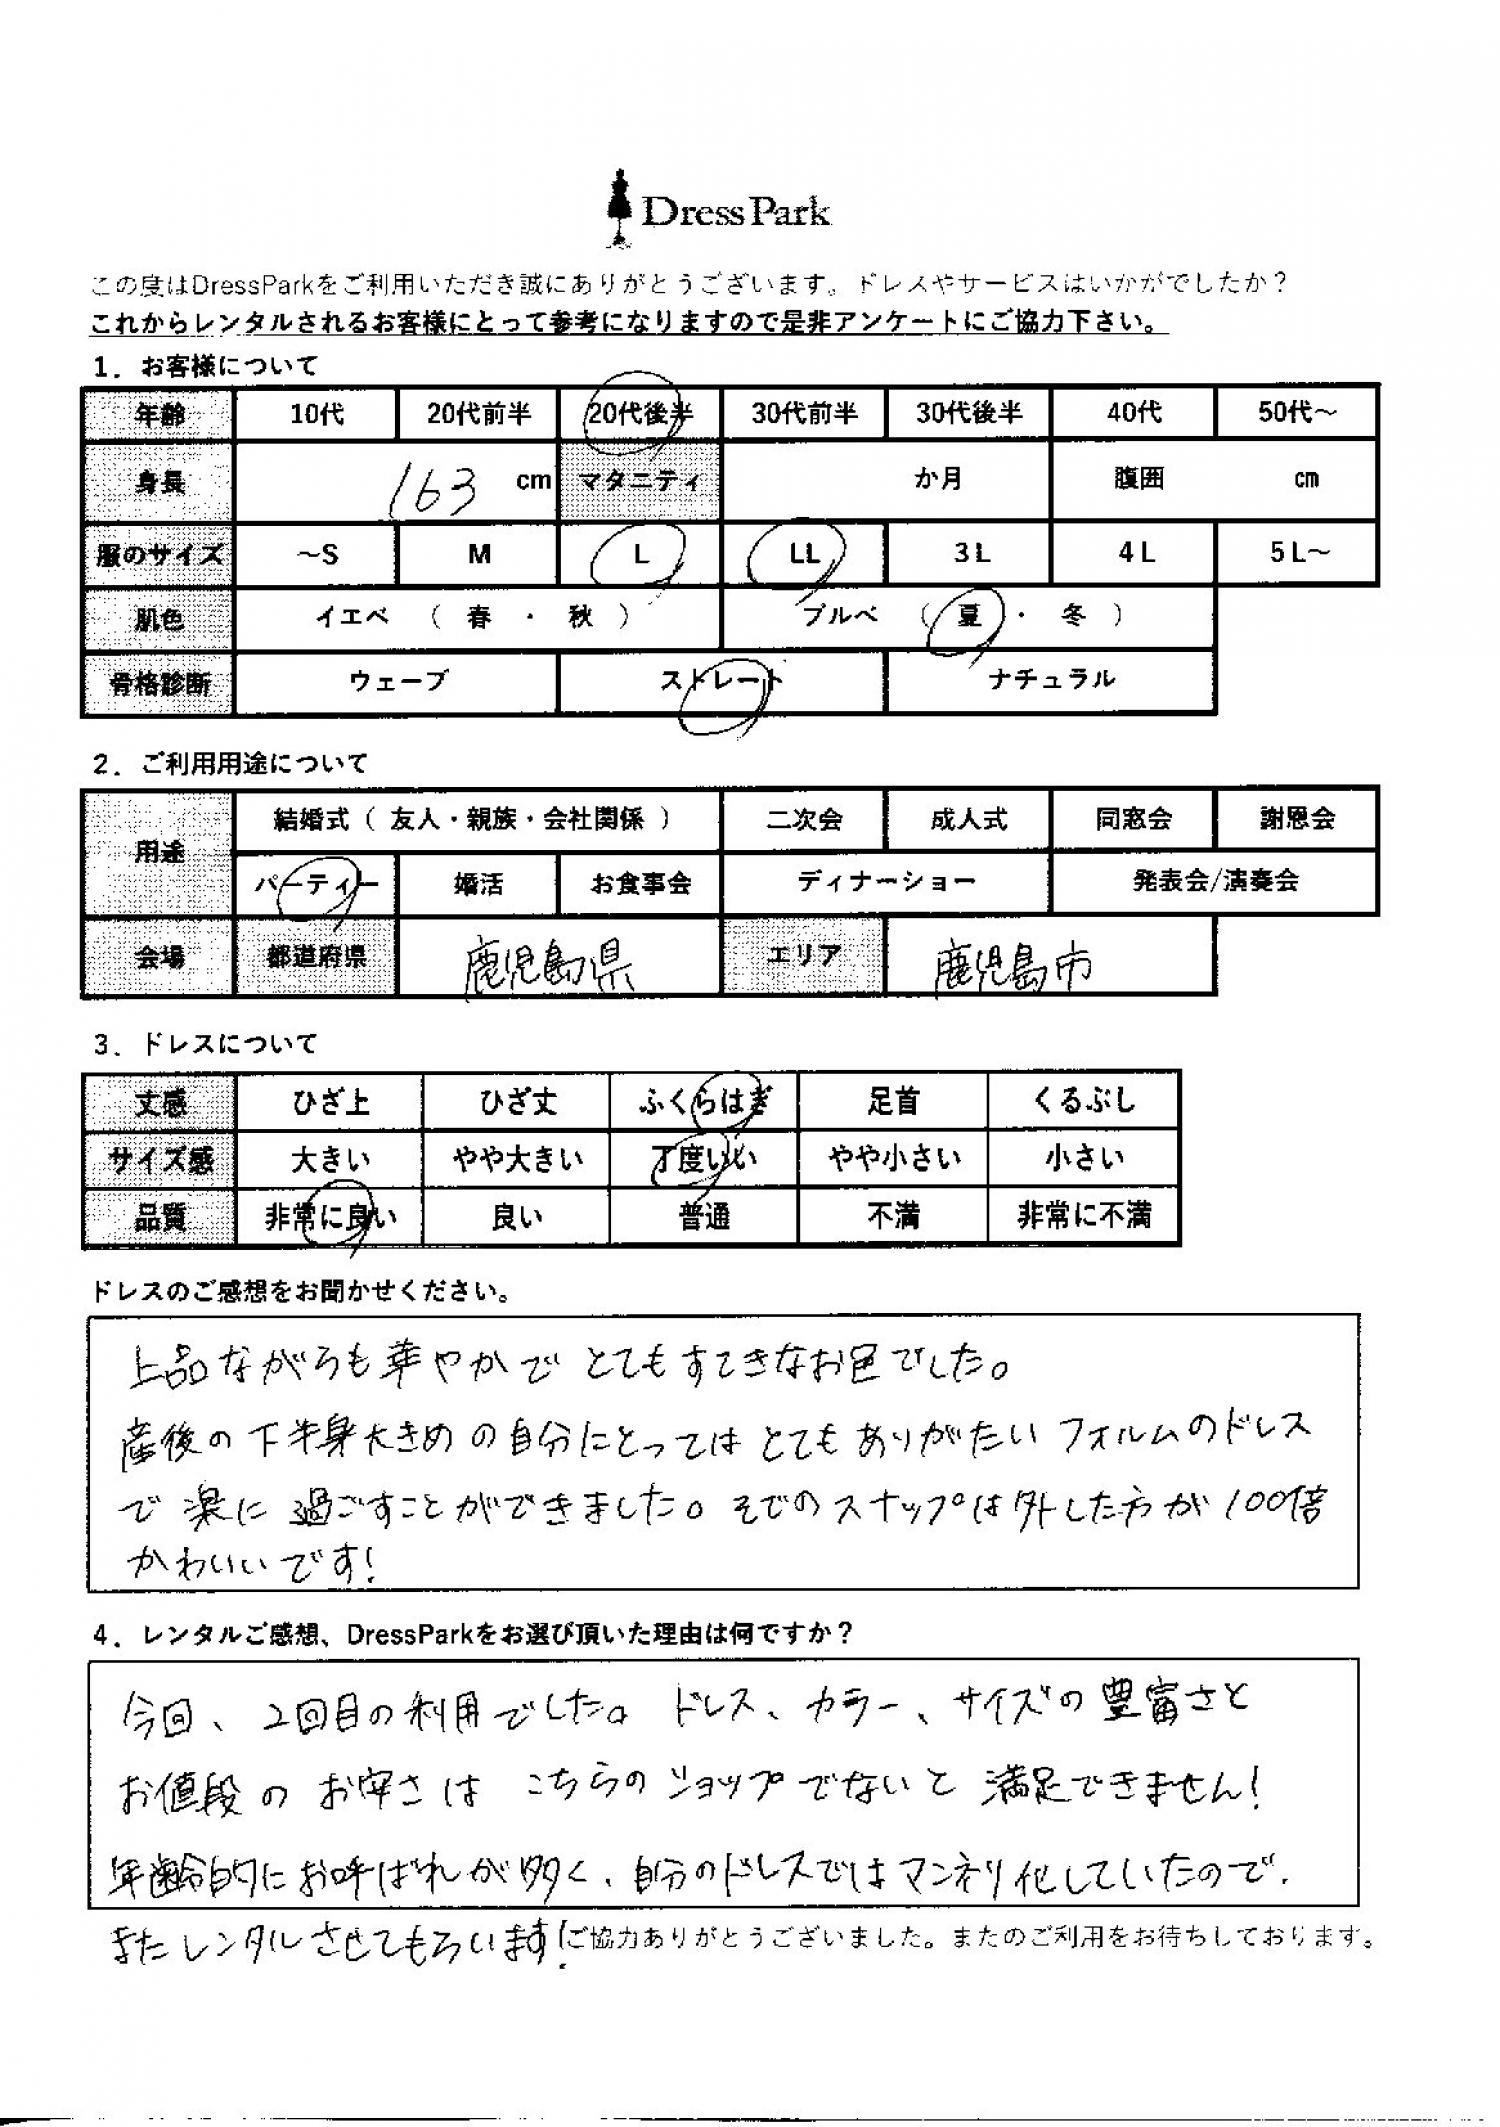 DressPark
この度はDressParkをご利用いただき誠にありがとうございます。ドレスやサービスはいかがでしたか？
これからレンタルされるお客様にとって参考になりますので是非アンケートにご協力下さい。
1．お客様について
年齢 10代 20代前半 20代後半 30代前半 30代後半 40代 50代～
身長 163 cm マタニティ か月 腹囲 cm
服のサイズ ～S M L LL 3L 4L 5L～
肌色 イエベ（ 春 ・ 秋 ） ブルベ（ 夏 ・ 冬 ）
骨格診断 ウェーブ ストレート ナチュラル
2．ご利用用途について
用途 結婚式（ 友人・親族・会社関係 ） 二次会 成人式 同窓会 謝恩会
パーティー 婚活 お食事会 ディナーショー 発表会/演奏会
会場 都道府県 鹿児島県 エリア 鹿児島市
3．ドレスについて
丈感 ひざ上 ひざ丈 ふくらはぎ 足首 くるぶし
サイズ感 大きい やや大きい 丁度いい やや小さい 小さい
品質 非常に良い 良い 普通 不満 非常に不満
ドレスのご感想をお聞かせください。
上品ながらも華やかで とてもすてきなお色でした。
産後の下半身大きめの自分にとっては とてもありがたい フォルムのドレス
で 楽に 過ごすことができました。そでのスナップは外した方が 100倍
かわいいです！
4．レンタルご感想、DressParkをお選び頂いた理由は何ですか？
今回、2回目の利用でした。ドレス、カラー、サイズの豊富さと
お値段の お安さは こちらのショップでないと 満足できません！
年齢的にお呼ばれが多く、自分のドレスではマンネリ化していたので、
またレンタルさせてもらいます！
ご協力ありがとうございました。またのご利用をお待ちしております。